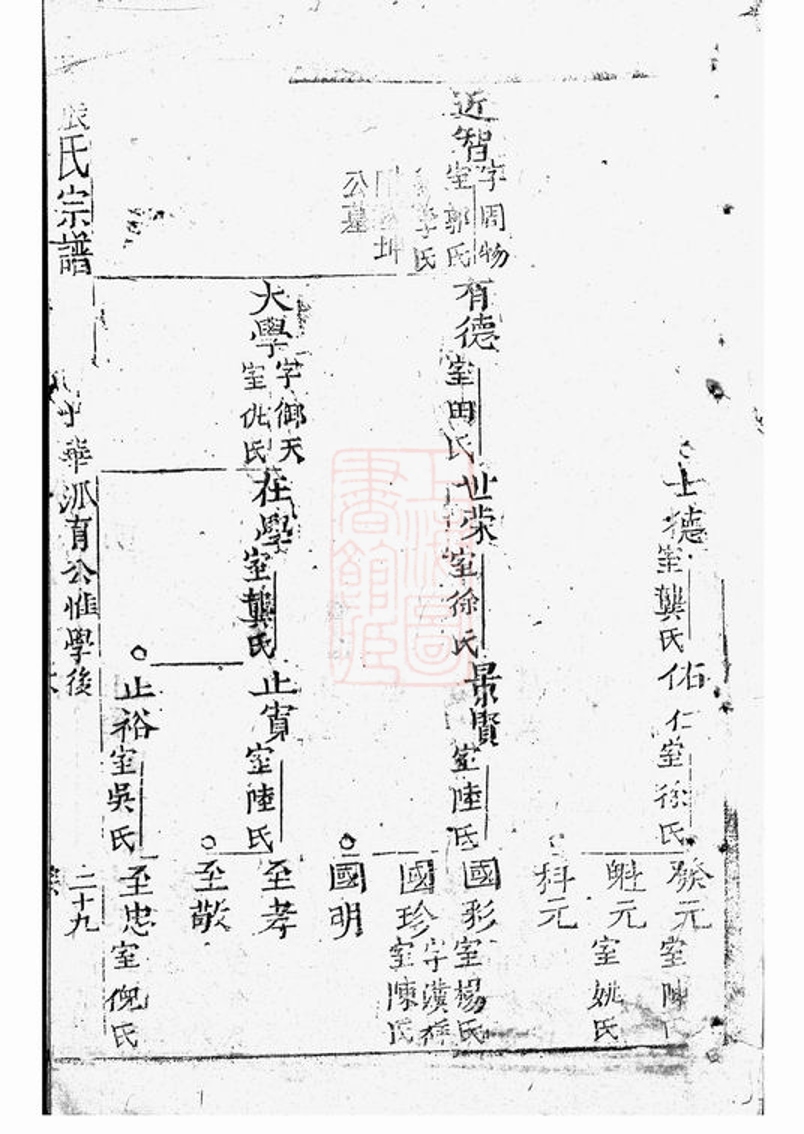 士德 室龔氏
佑仁 室徐氏
發元 室陳
魁元 室姚氏
科元
近智 字周物 室郭氏 李氏 坤 公墓
有德 室田氏
世荣 室徐氏
景賢 室陸氏
國彩 室楊氏
國珍 字漢 室陳氏
國明
大學 字御天 室仇氏
在學 室龔氏
止賓 室陸氏
至孝
至敬
止裕 室吳氏
至忠 室倪氏
氏宗譜
華派育公惟學後
二十九
上海圖書館